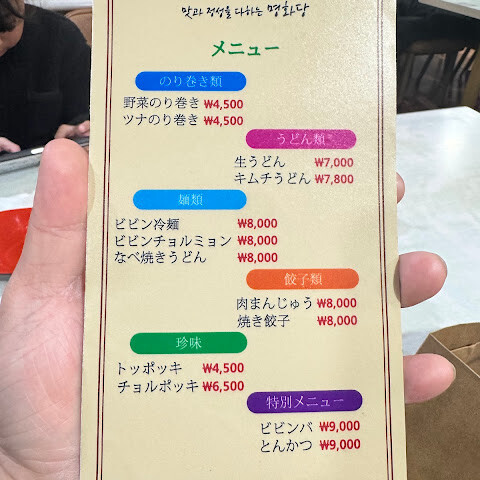 맛과 정성을 다하는 명화당
メニュー
のり巻き類
野菜のり巻き ₩4,500
ツナのり巻き ₩4,500
うどん類
生うどん ₩7,000
キムチうどん ₩7,800
麺類
ビビン冷麺 ₩8,000
ビビンチョルミョン ₩8,000
なべ焼きうどん ₩8,000
餃子類
肉まんじゅう ₩8,000
焼き餃子 ₩8,000
珍味
トッポッキ ₩4,500
チョルポッキ ₩6,500
特別メニュー
ビビンバ ₩9,000
とんかつ ₩9,000